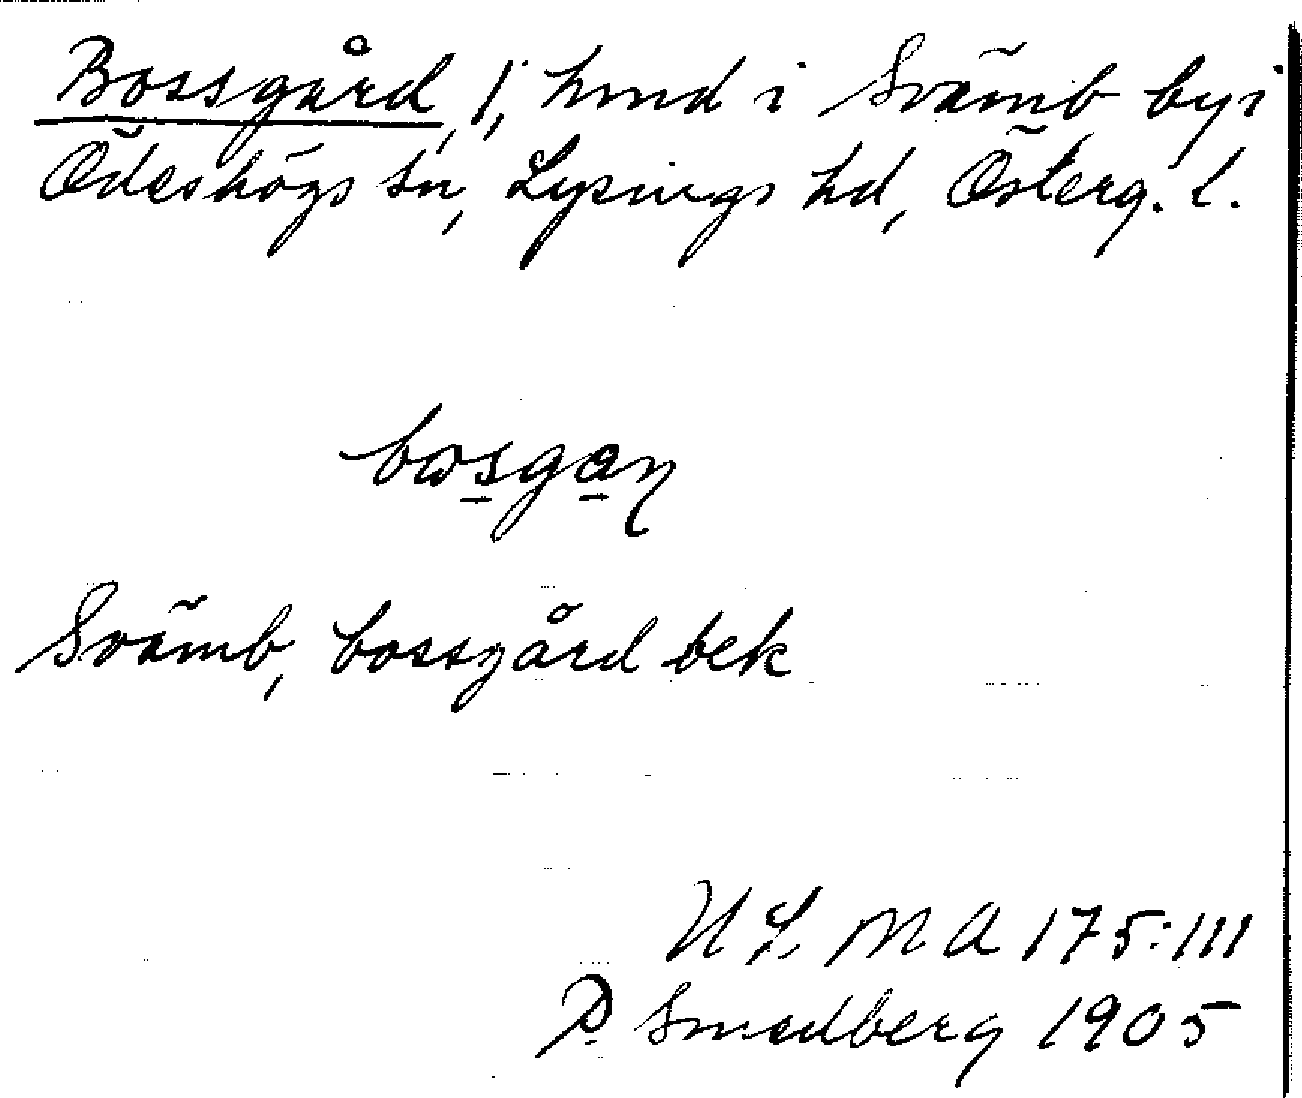 Bossgård, 1, hmd i Svämb by i
Ödeshögs sn, Lysings hd, Österg. l.
Svämb, bossgård bek
ULMA 175:111
P Smedberg 1905